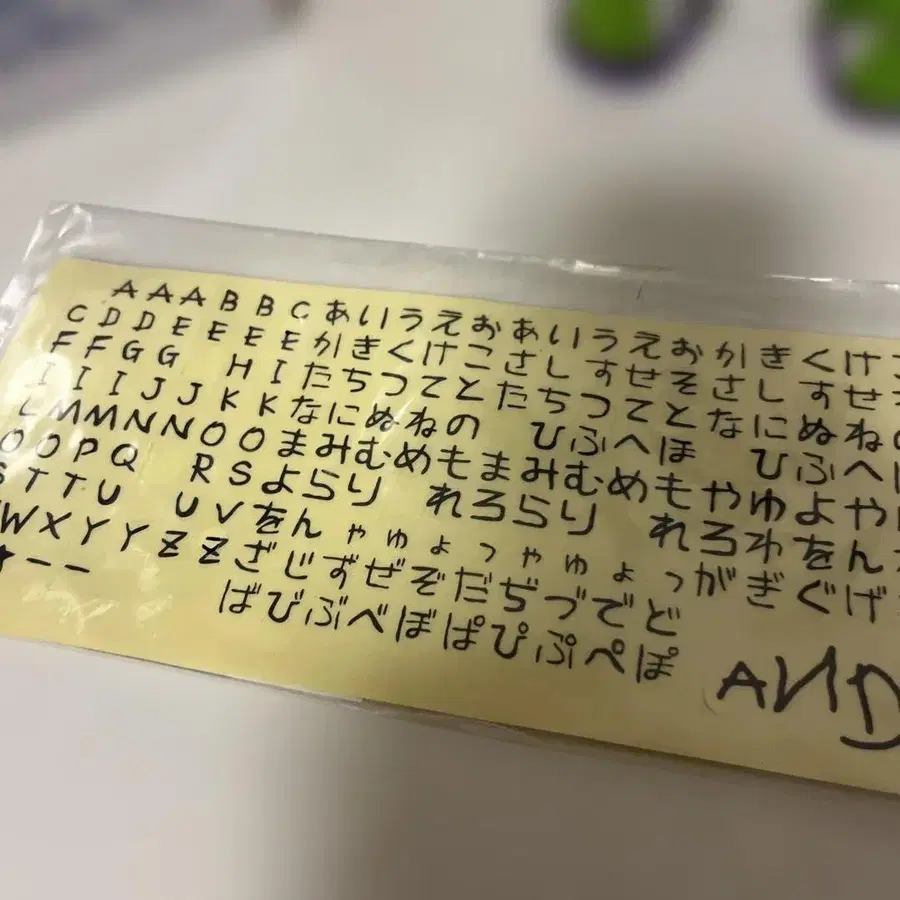 A A A B B C あいうえおあいうえおかきくけ
C D D E E E E かきくけこさしすせそさしすせ
F F G G H I たちつてとたちつてとなにぬね
I I I J J K K なにぬねの ひふへほ ひふへ
L M M N N O O まみむめもまみむめもやゆよや
O O P Q R S よらり れろらり れろわをん
S T T U U V をんゃゅょっゃゅょっがぎぐげ
W X Y Y Z Z ざじずぜぞだぢづでど
ーー ばびぶべぼぱぴぷぺぽ
AND